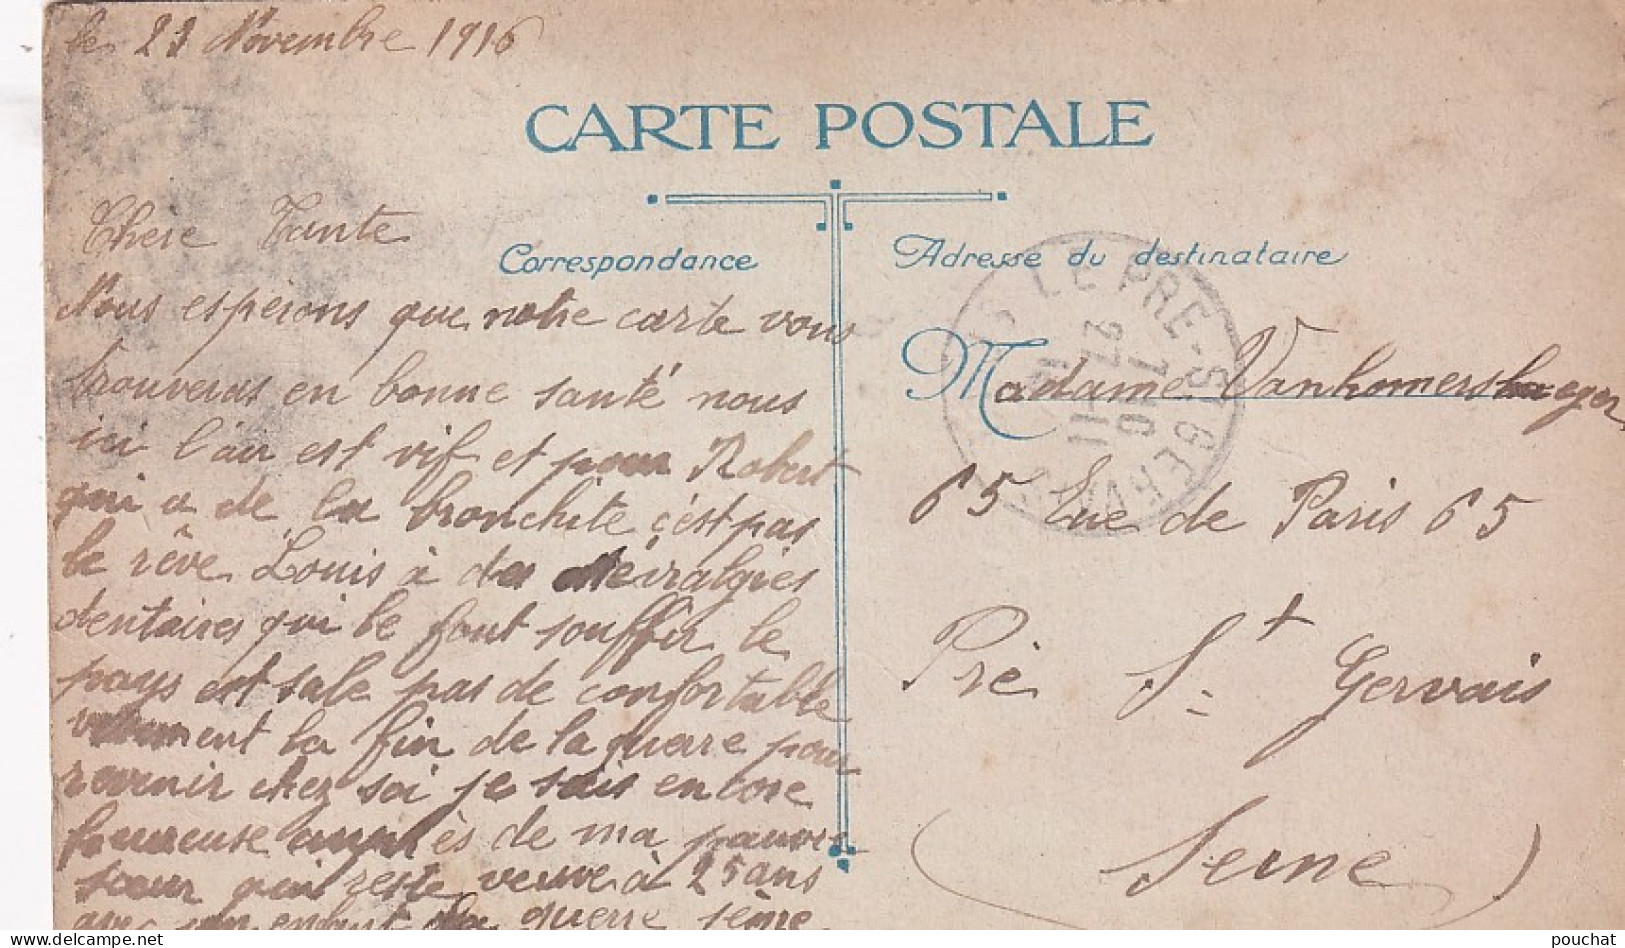 le 21 Novembre 1916
CARTE POSTALE
Correspondance
Adresse du destinataire
Chère Tante
Nous espérons que notre carte vous
trouveras en bonne santé nous
ici l'air est vif et pour Robert
qui a de la bronchite c'est pas
le rêve Louis à des névralgies
dentaires qui le font souffrir le
pays est sale pas de confortable
vivement la fin de la guerre pour
revenir chez soi je suis encore
heureuse auprès de ma pauvre
sœur qui reste veuve à 25 ans
avec un enfant la guerre sème
LE PRE-ST GERVAIS
27-11
16
Madame
65 Rue de Paris 65
Pré St Gervais
(Seine)
pouchat